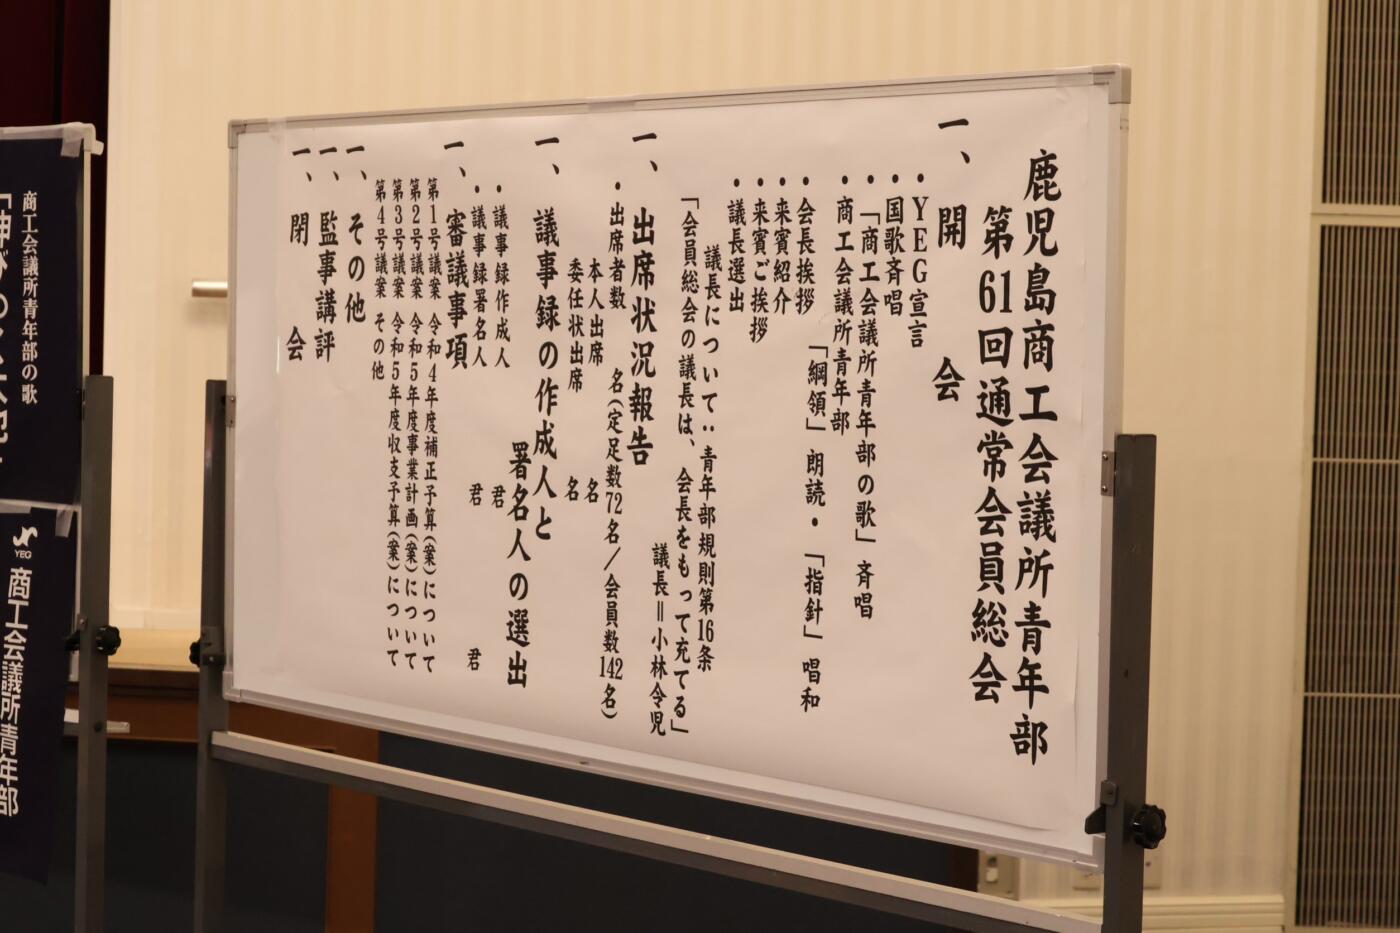 鹿児島商工会議所青年部
第61回通常会員総会
一、開　会
・YEG宣言
・国歌斉唱
・「商工会議所青年部の歌」斉唱
・商工会議所青年部
「綱領」朗読・「指針」唱和
・会長挨拶
・来賓紹介
・来賓ご挨拶
・議長選出
議長について：青年部規則第16条
「会員総会の議長は、会長をもって充てる」
議長＝小林令児
一、出席状況報告
・出席者数　　名（定足数72名／会員数142名）
本人出席　　名
委任状出席　　名
一、議事録の作成人と
署名人の選出
・議事録作成人　　君
・議事録署名人　　君　　君
一、審議事項
第1号議案　令和4年度補正予算（案）について
第2号議案　令和5年度事業計画（案）について
第3号議案　令和5年度収支予算（案）について
第4号議案　その他
一、その他
一、監事講評
一、閉　会
商工会議所青年部の歌
YEG
商工会議所青年部